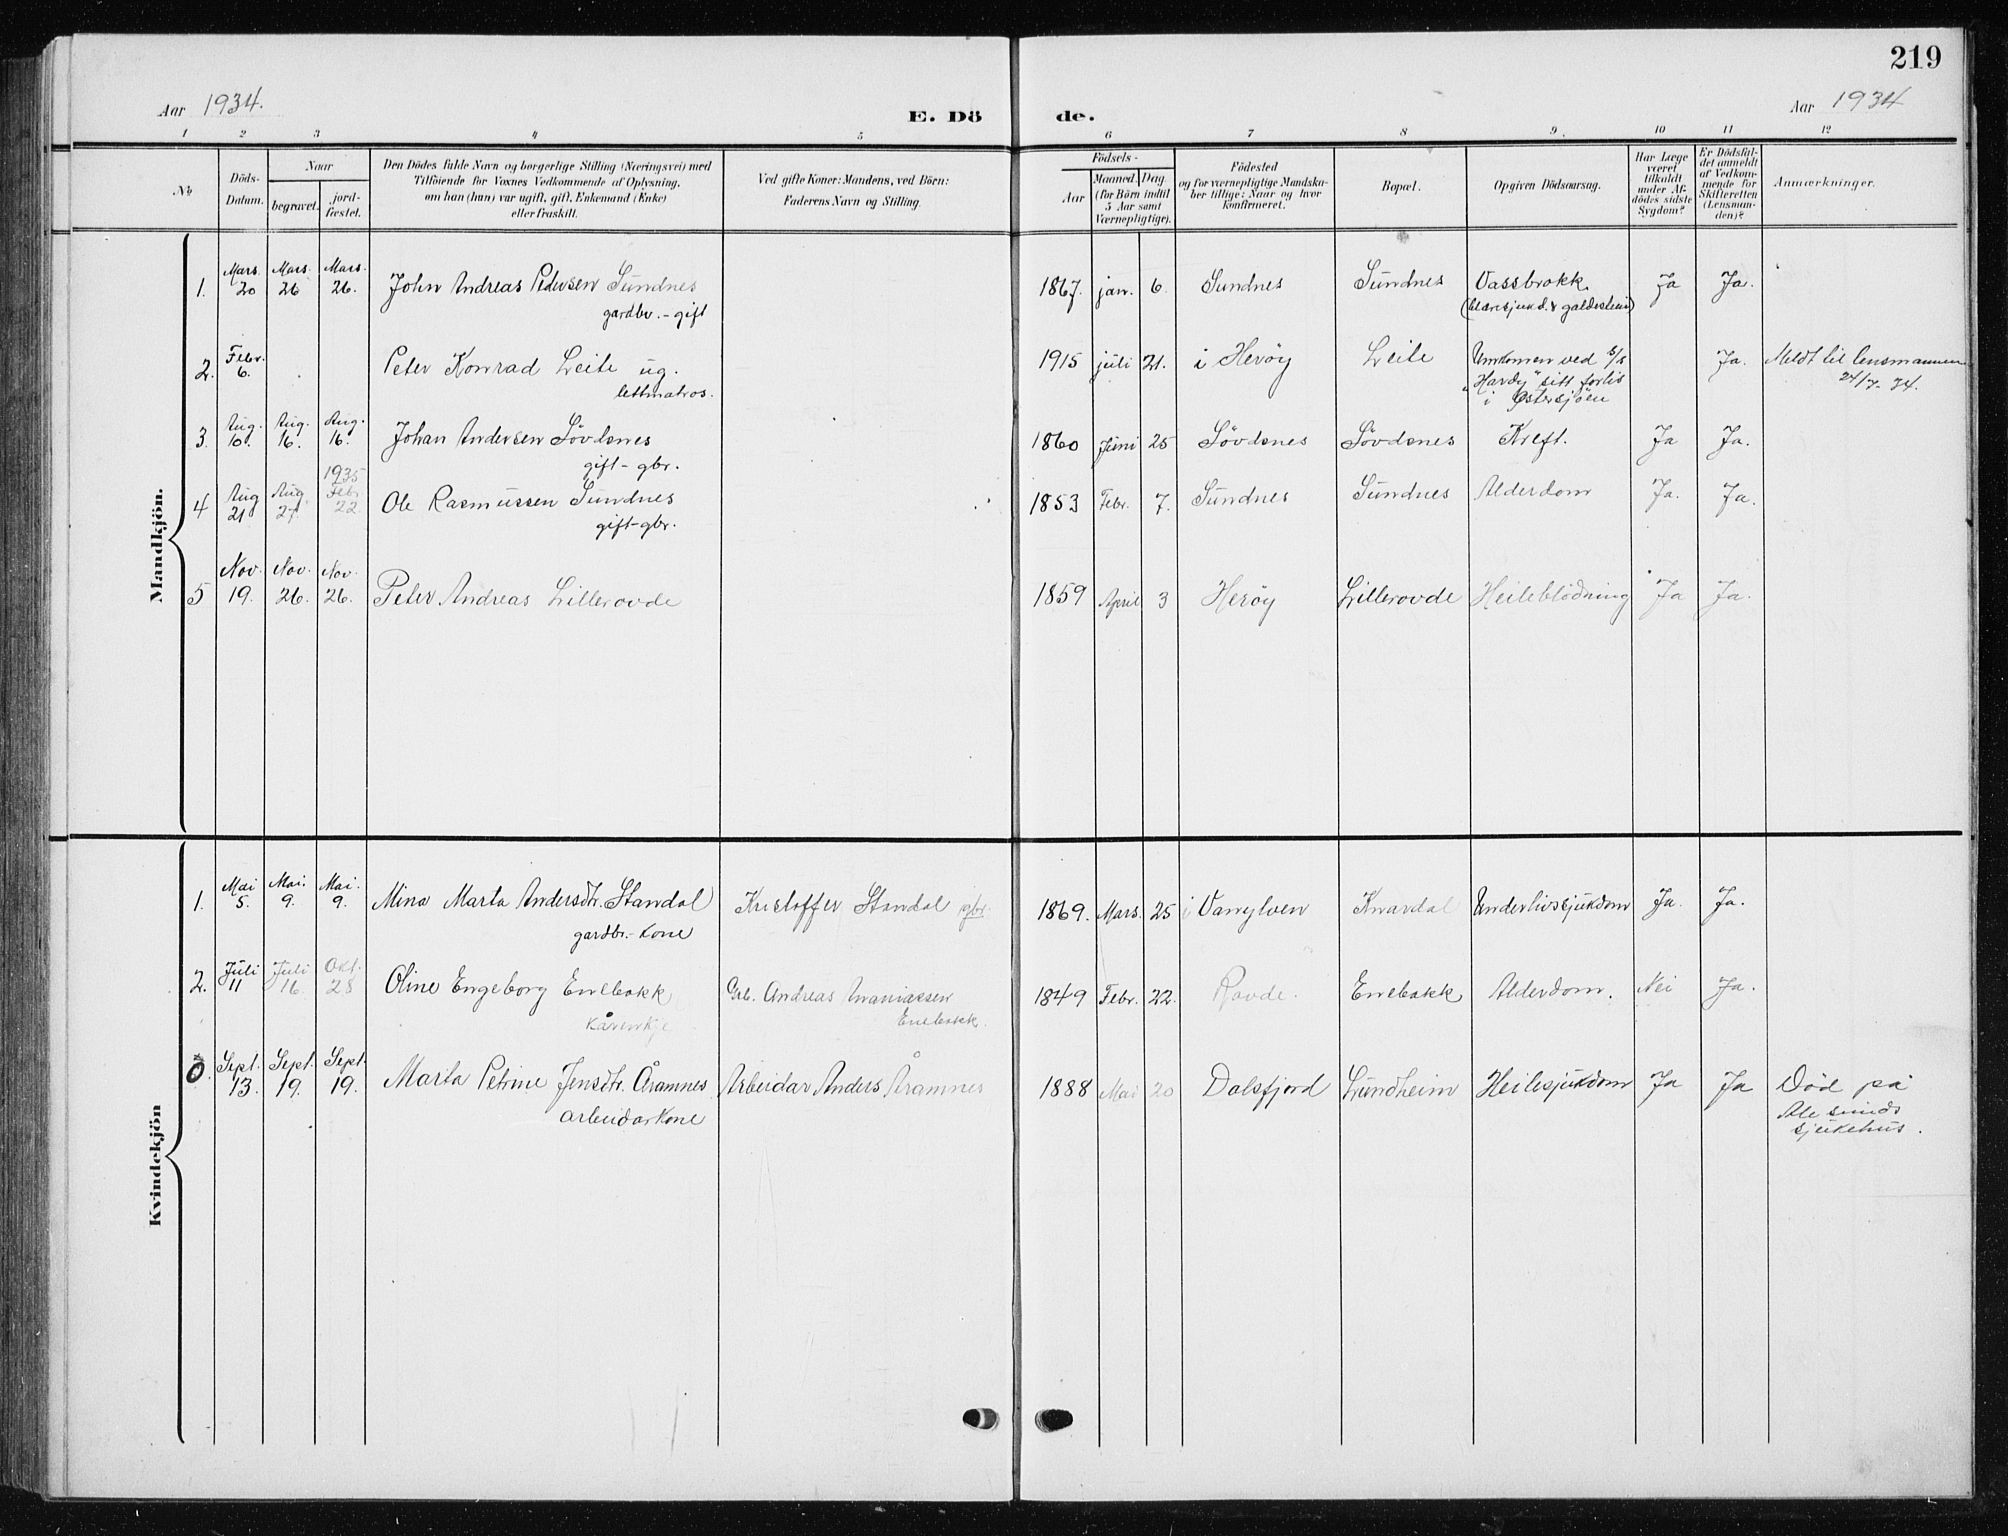 219
Aar 1934.
E. Dö de.
Aar 1934
1 2 3 4 5 6 7 8 9. 10 11 12
No
Döds-
Datum.
Naar
begravet.
jord-
fæstet.
Den Dödes fulde Navn og borgerlige Stilling (Næringsvei) med
Tilföiende for Voxnes Vedkommende af Oplysning,
om han (hun) var ugift, gift, Enkemand (Enke)
eller fraskilt.
Ved gifte Koner: Mandens, ved Börn:
Faderens Navn og Stilling.
Födsels-
Aar
Maaned. Dag.
(for Börn indtil
5 Aar samt
Værnepligtige).
Födested
og for værnepligtige Mandska-
ber tillige: Naar og hvor
konfirmeret.
Bopæl.
Opgiven Dödsaarsag.
Har Læge
været
tilkaldt
under Af-
dödes sidste
Sygdom?
Er Dödsfal-
det anmeldt
af Vedkom-
mende for
Skifteretten
(Lensman-
den)?
Anmærkninger.
Mandkjön.
1. Mars. 20 Mars. 26 Mars. 26. John Andreas Pedersen Sundnes 1867. jan. 6. Sundnes Sundnes Vassbrokk. Ja Ja.
gardbr. - gift
2. Febr. 6. Peter Konrad Leite ug. 1915 juli 21. i Herøy Leite Umkomen ved s/s Ja. Meldt til lensmannen
lettmatros. "Hardy" sitt forlis 24/7-34.
i Østersjøen
3. Aug. 10. Aug. 16. Aug. 16. Johan Andersen Søvdsnes 1860 Juni 25 Søvdsnes Søvdsnes Kreft. Ja Ja.
gift - gbr.
4 Aug 21 Aug. 27. 1935 Febr 22 Ole Rasmussen Sundnes 1853 Febr. 7. Sundnes Sundnes Alderdom Ja. Ja.
gift-gbr.
5 Nov. 19. Nov. 26. Nov. 26. Peter Andreas Lillerovde 1859 April 3 Herøy Lillerovde Heileblödning Ja Ja.
Kvindekjön
1. Mai 5. Mai. 9. Mai. 9. Mina Marta Andersdtr. Standal Kristoffer Standal gbr. 1869. Mars. 25 i Vanylven Knardal Underlivssjukdom Ja. Ja.
gardbr.- kone
2. Juli 11 Juli 16. Okt. 28 Oline Engeborg Enebakk Gbr. Andreas Ananiassen 1849 Febr. 22. Rovde. Enebakk Alderdom. Nei Ja.
kårenkje Enebakk.
Sept. 13. Sept. 19. Sept. 19. Marta Petrine Jensdtr. Åramnes Arbeidar Anders Åramnes 1888 Mai 20 Dalsfjord Lundheim Heilesjukdom Ja Ja Död på
arbeidarkone Ålesunds
sjukehus.